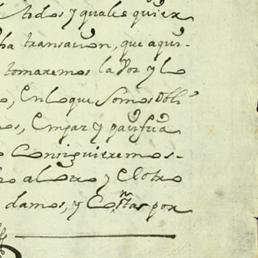 todos y quales quier
ha transacion, que aqui-
tomaremos la Voz y lo
o, En lo que Somos obli
os, En paz y pacifica
o Consiguieremos-
o al otro y El otro
damos, y Costas por